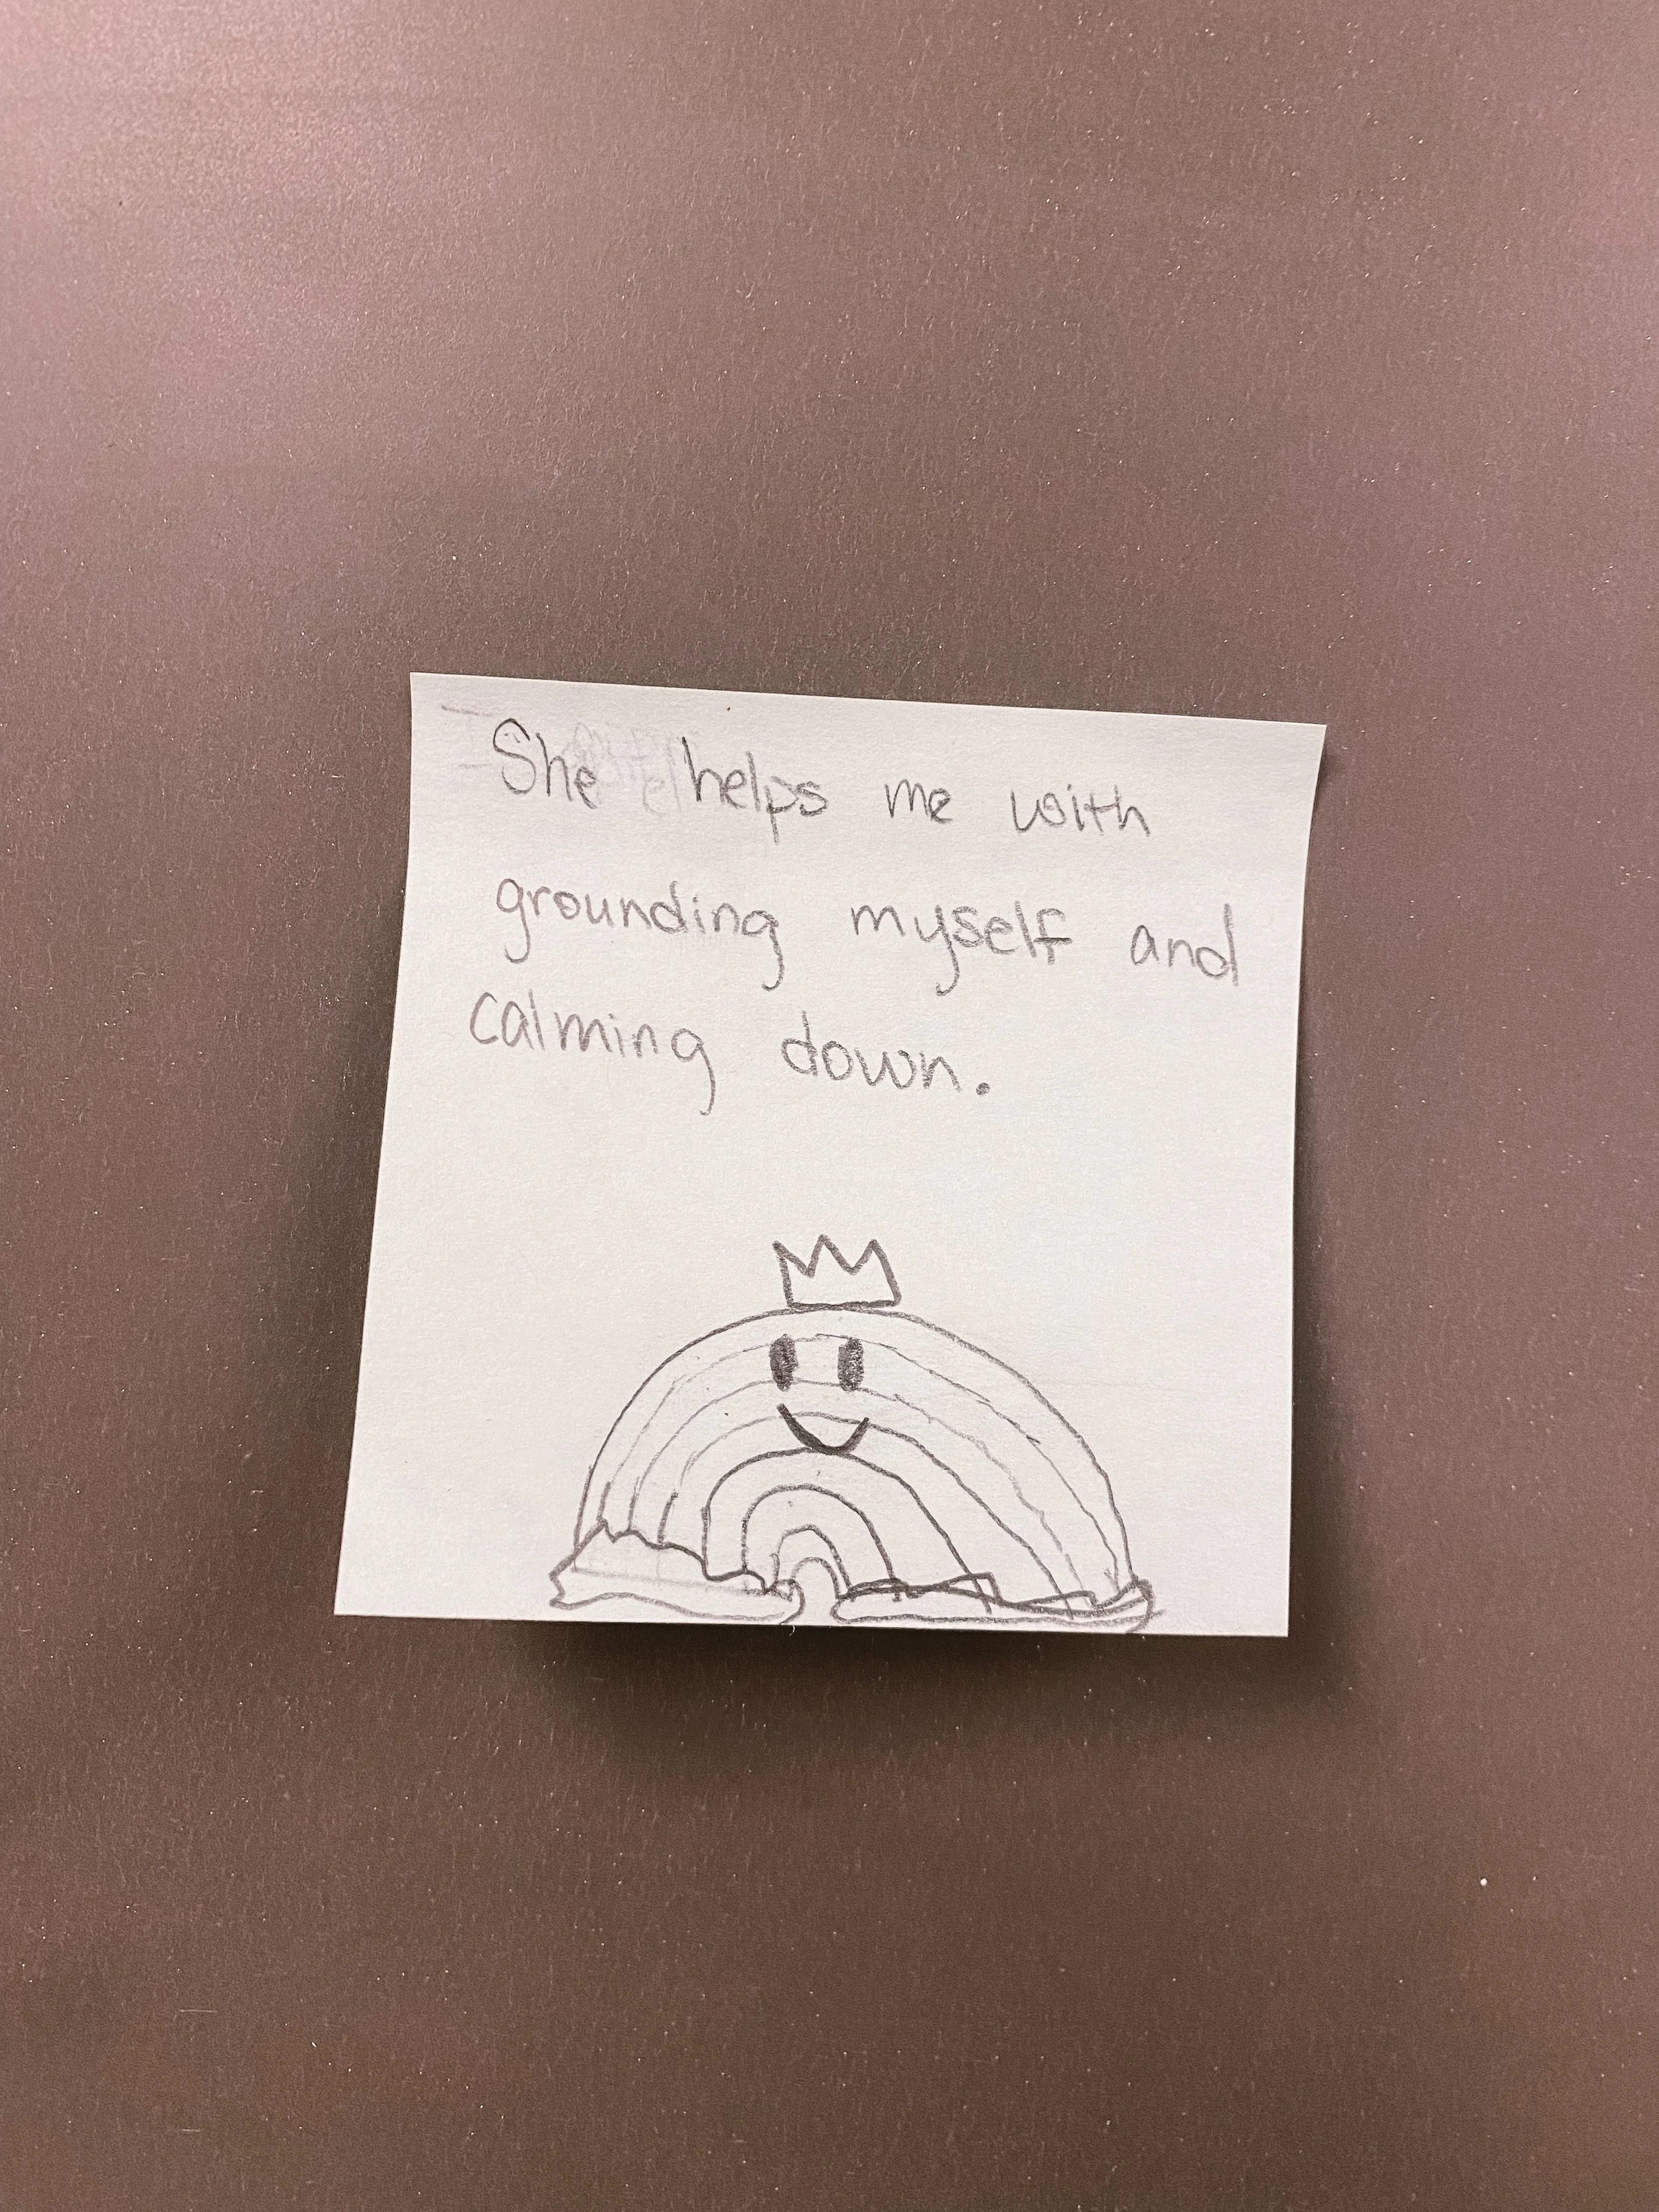 She helps me with
grounding myself and
calming down.